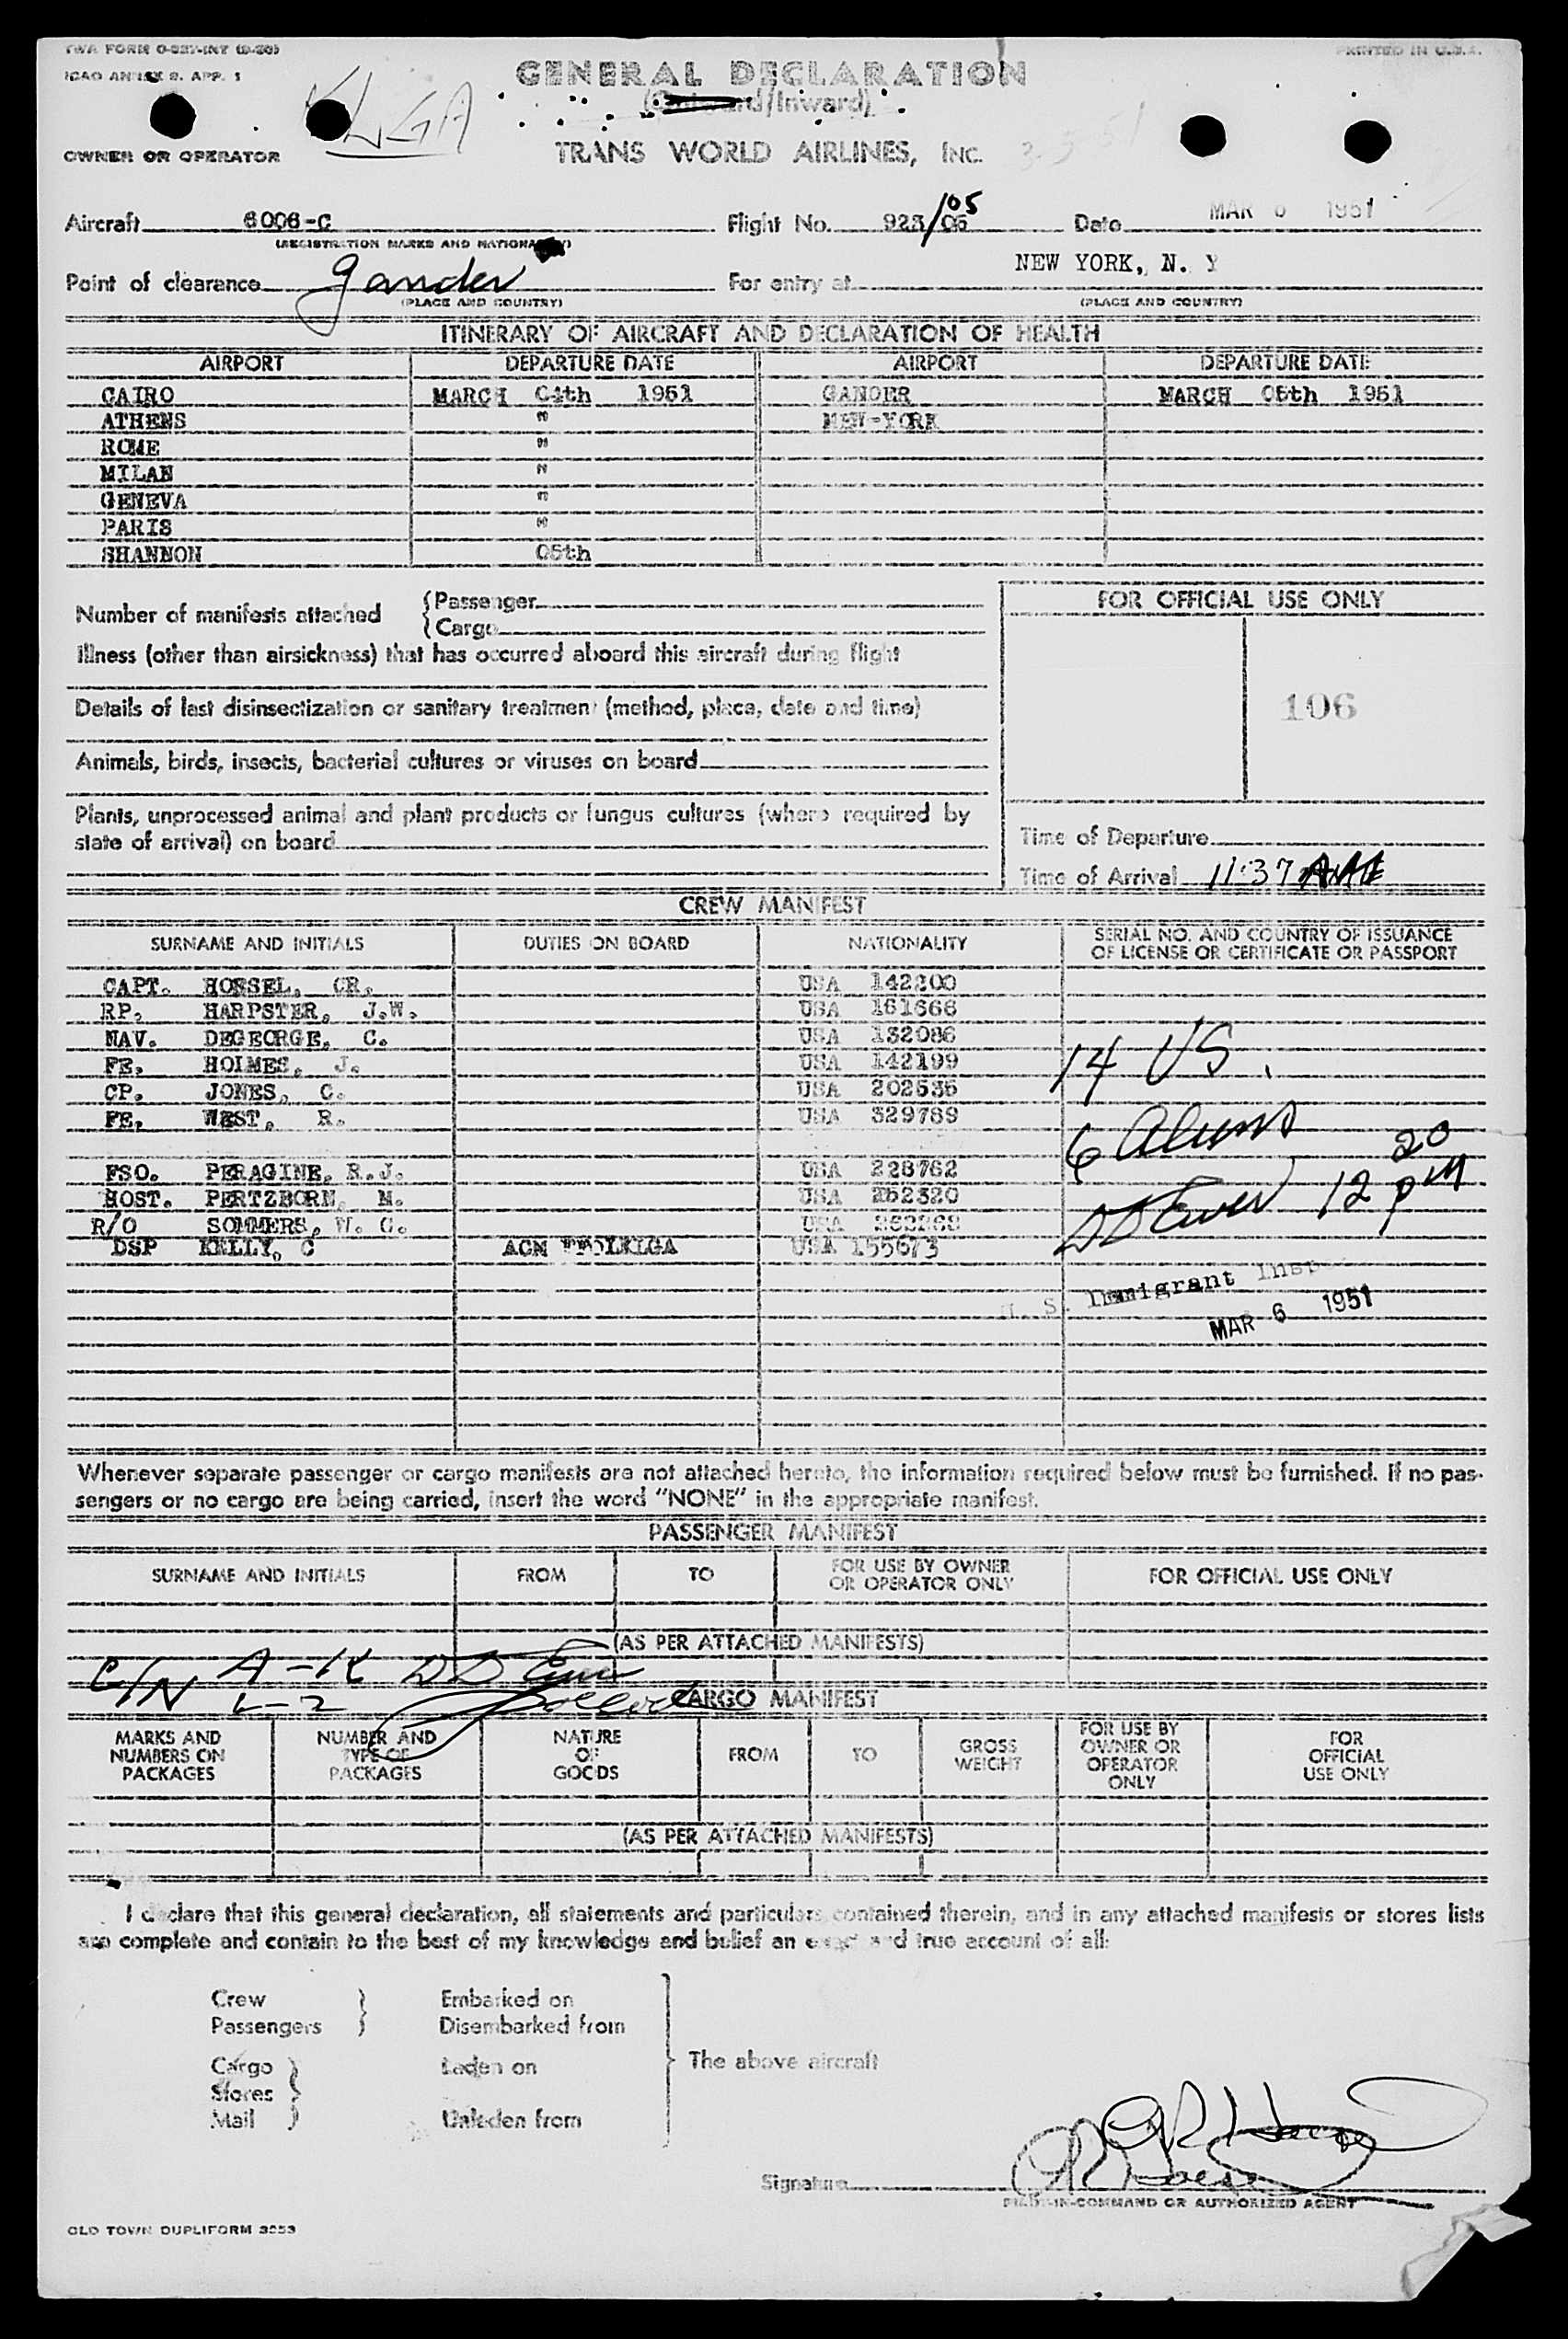 TWA FORM O-337-INT
PRINTED IN U.S.A.
ICAO ANNEX 9. APP. 1
GENERAL DECLARATION
(Outward/Inward)
LGA
OWNER OR OPERATOR
TRANS WORLD AIRLINES, INC.
Aircraft 6006-C Flight No. 923/05 /105 Date MAR 6 1951
(REGISTRATION MARKS AND NATIONALITY)
Point of clearance Gander For entry at NEW YORK, N. Y
(PLACE AND COUNTRY) (PLACE AND COUNTRY)
ITINERARY OF AIRCRAFT AND DECLARATION OF HEALTH
AIRPORT DEPARTURE DATE AIRPORT DEPARTURE DATE
CAIRO MARCH 04th 1951 GANDER MARCH 05th 1951
ATHENS " NEW-YORK
ROME "
MILAN "
GENEVA "
PARIS "
SHANNON 05th
Number of manifests attached {Passenger
{Cargo
FOR OFFICIAL USE ONLY
Illness (other than airsickness) that has occurred aboard this aircraft during flight
Details of last disinsectization or sanitary treatment (method, place, date and time)
106
Animals, birds, insects, bacterial cultures or viruses on board
Plants, unprocessed animal and plant products or fungus cultures (where required by
state of arrival) on board
Time of Departure
Time of Arrival 11:37
CREW MANIFEST
SURNAME AND INITIALS DUTIES ON BOARD NATIONALITY SERIAL NO. AND COUNTRY OF ISSUANCE
OF LICENSE OR CERTIFICATE OR PASSPORT
CAPT. HOESSEL, CR. USA 142200
RP. HARPSTER, J.W. USA 161666
NAV. DEGEORGE, C. USA 132086
FE. HOLMES, J. USA 142199
14 US.
CP. JONES, C. USA 202535
FE. WEST, R. USA 329789
6 Aliens
FSO. PERAGINE, R.J. USA 228762
HOST. PERTZBORN, M. USA 262320
DD Ewen 12 20 pM
R/O SOMMERS, W. G. USA
DSP KELLY, C ACM USA 155673
U. S. Immigrant Insp
MAR 6 1951
Whenever separate passenger or cargo manifests are not attached hereto, the information required below must be furnished. If no pas-
sengers or no cargo are being carried, insert the word "NONE" in the appropriate manifest.
PASSENGER MANIFEST
SURNAME AND INITIALS FROM TO FOR USE BY OWNER
OR OPERATOR ONLY FOR OFFICIAL USE ONLY
(AS PER ATTACHED MANIFESTS)
C/N A-K DD Ewen
L-Z
CARGO MANIFEST
MARKS AND
NUMBERS ON
PACKAGES NUMBER AND
TYPE OF
PACKAGES NATURE
OF
GOODS FROM TO GROSS
WEIGHT FOR USE BY
OWNER OR
OPERATOR
ONLY FOR
OFFICIAL
USE ONLY
(AS PER ATTACHED MANIFESTS)
I declare that this general declaration, all statements and particulars contained therein, and in any attached manifests or stores lists
are complete and contain to the best of my knowledge and belief an exact and true account of all:
Crew } Embarked on
Passengers } Disembarked from
Cargo } Laden on
The above aircraft
Stores }
Mail } Unladen from
Signature
PILOT-IN-COMMAND OR AUTHORIZED AGENT
OLD TOWN DUPLIFORM 3253